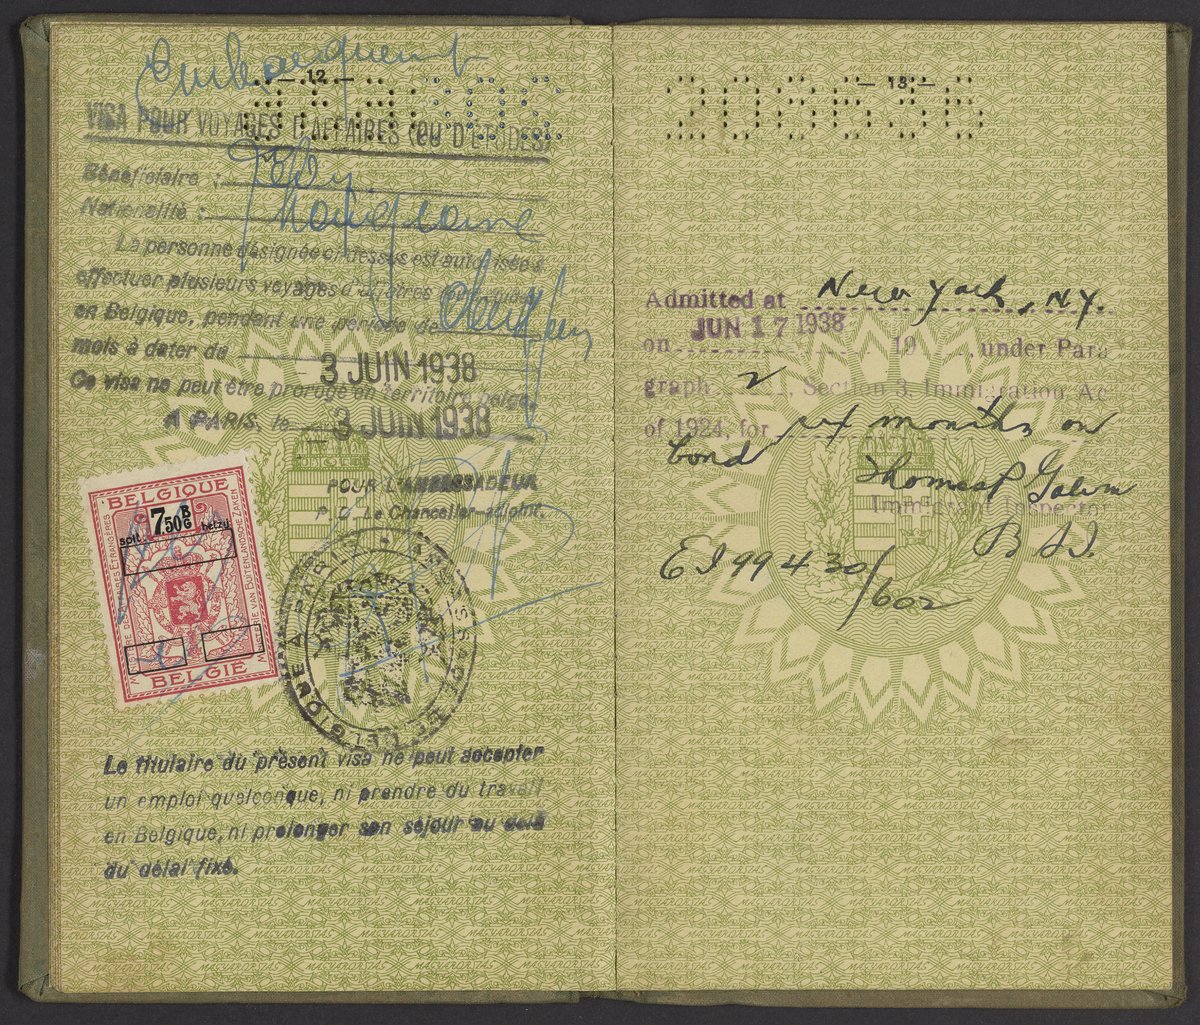 Embarquement
— 12 —
VISA POUR VOYAGES D'AFFAIRES (OU D'ÉTUDES)
Bénéficiaire :
Nationalité : hongroise
La personne désignée ci-dessus est autorisée à
effectuer plusieurs voyages d'affaires
en Belgique, pendant une période de
mois à dater du 3 JUIN 1938
Ce visa ne peut être prorogé en territoire belge.
A PARIS, le 3 JUIN 1938
POUR L'AMBASSADEUR
P. D. Le Chancelier-adjoint.
BELGIQUE
soit: 7.50 B G hetzy
MINISTERE DES AFFAIRES ETRANGÈRES
MINISTERIE VAN BUITENLANDSCHE ZAKEN
BELGIË
AMBASSADE DE BELGIQUE A PARIS
Le titulaire du présent visa ne peut accepter
un emploi quelconque, ni prendre du travail
en Belgique, ni prolonger son séjour au delà
du délai fixé.
— 13 —
203636
Admitted at New York, N.Y.
JUN 17 1938
on 19 , under Para
graph 2, Section 3, Immigration Ac
of 1924, for six months on
bond
Immigrant Inspector
EI 99430/602
MAGYARORSZÁG